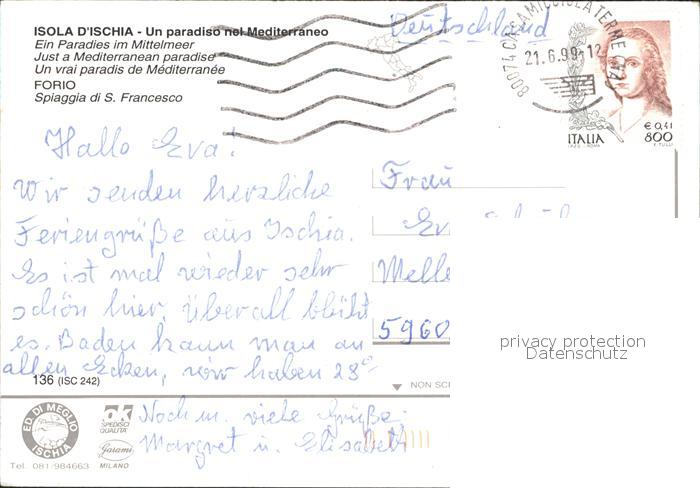 ISOLA D'ISCHIA - Un paradiso nel Mediterráneo
Ein Paradies im Mittelmeer
Just a Mediterranean paradise
Un vrai paradis de Méditerranée
FORIO
Spiaggia di S. Francesco
Deutschland
80074 CASAMICCIOLA TERME (NA)
21.6.99-12
€ 0,41
ITALIA 800
Hallo Eva!
Wir senden herzliche
Feriengrüße aus Ischia.
Es ist mal wieder sehr
schön hier, überall blüht
es. Baden kann man an
allen Ecken, wir haben 28°
Frau
Ev
Melle
5960
privacy protection
Datenschutz
136 (ISC 242)
NON SC
ED. DI MEGLIO
ISCHIA
Tel. 081/984663
ok
SPEDISCI
QUALITA'
Garami
MILANO
Noch m. viele Grüße
Margret u. Elisabeth